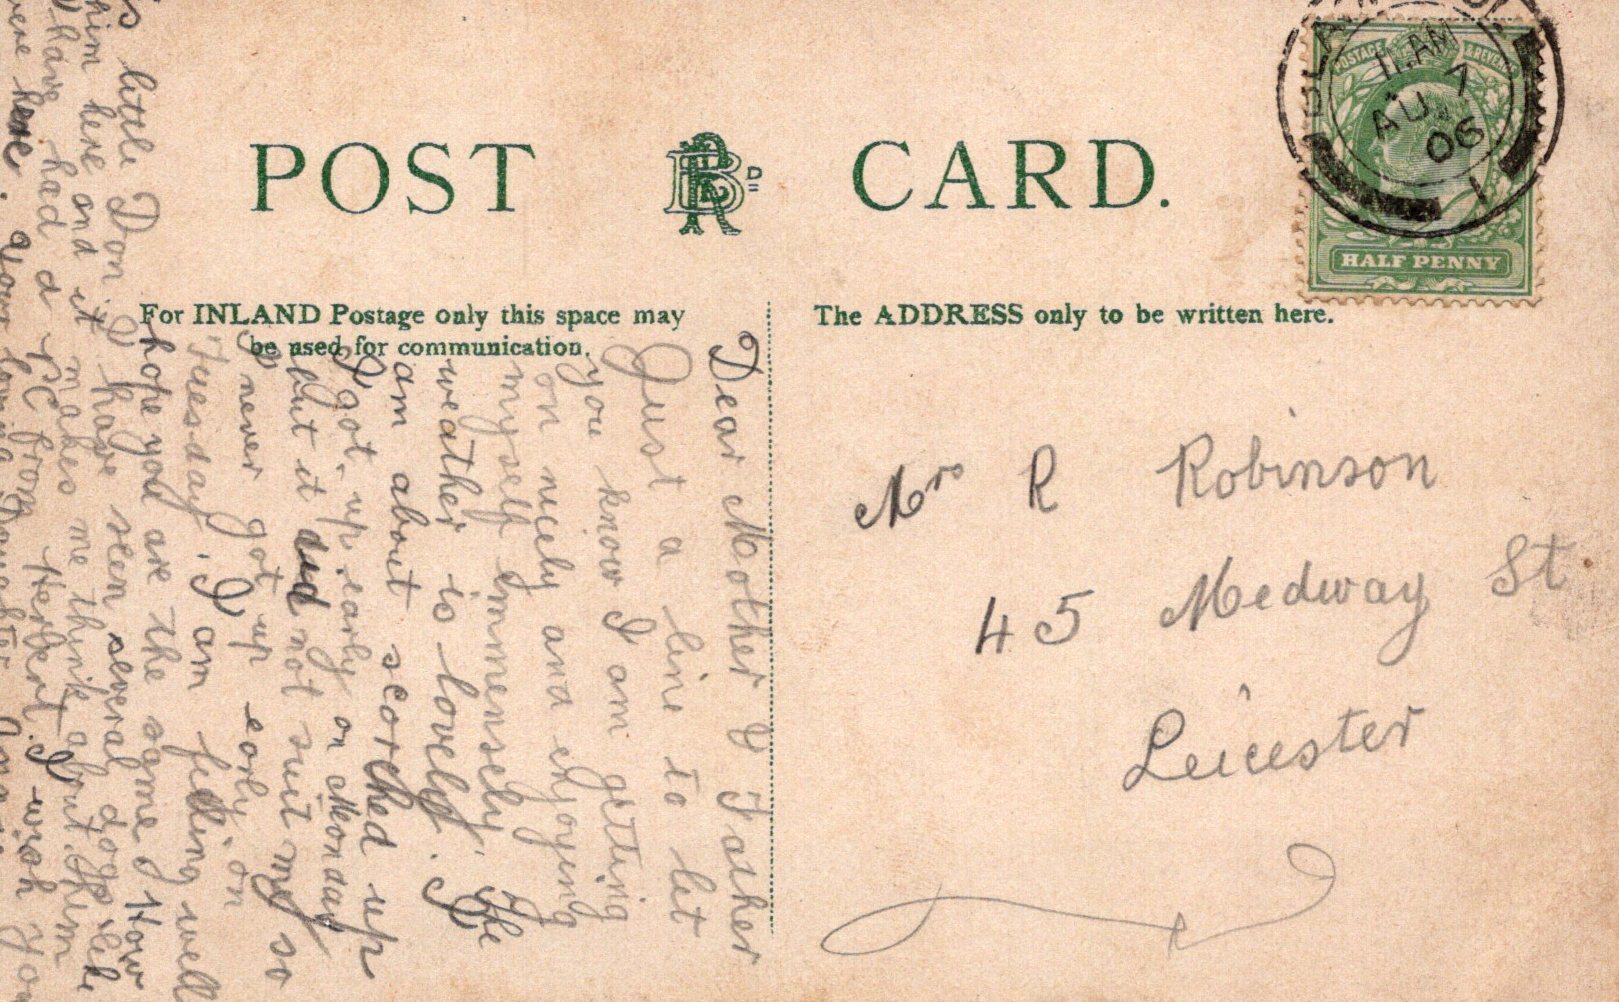 POST CARD.
BRD
HALF PENNY
11.AM
AU 7
06
1
For INLAND Postage only this space may
be used for communication.
The ADDRESS only to be written here.
Mrs R Robinson
45 Medway St
Leicester
Dear Mother & Father
Just a line to let
you know I am getting
on nicely and enjoying
myself immensely. The
weather is lovely. I
am about scorched up
I got up early on Monday
but it did not suit me so
I never got up early on
Tuesday. I am feeling well
hope you are the same & How
is little Don I have seen several dogs like
him here and it makes me think about him
I have had a PC from Herbert. I wish you
were here. your loving Daughter Annie